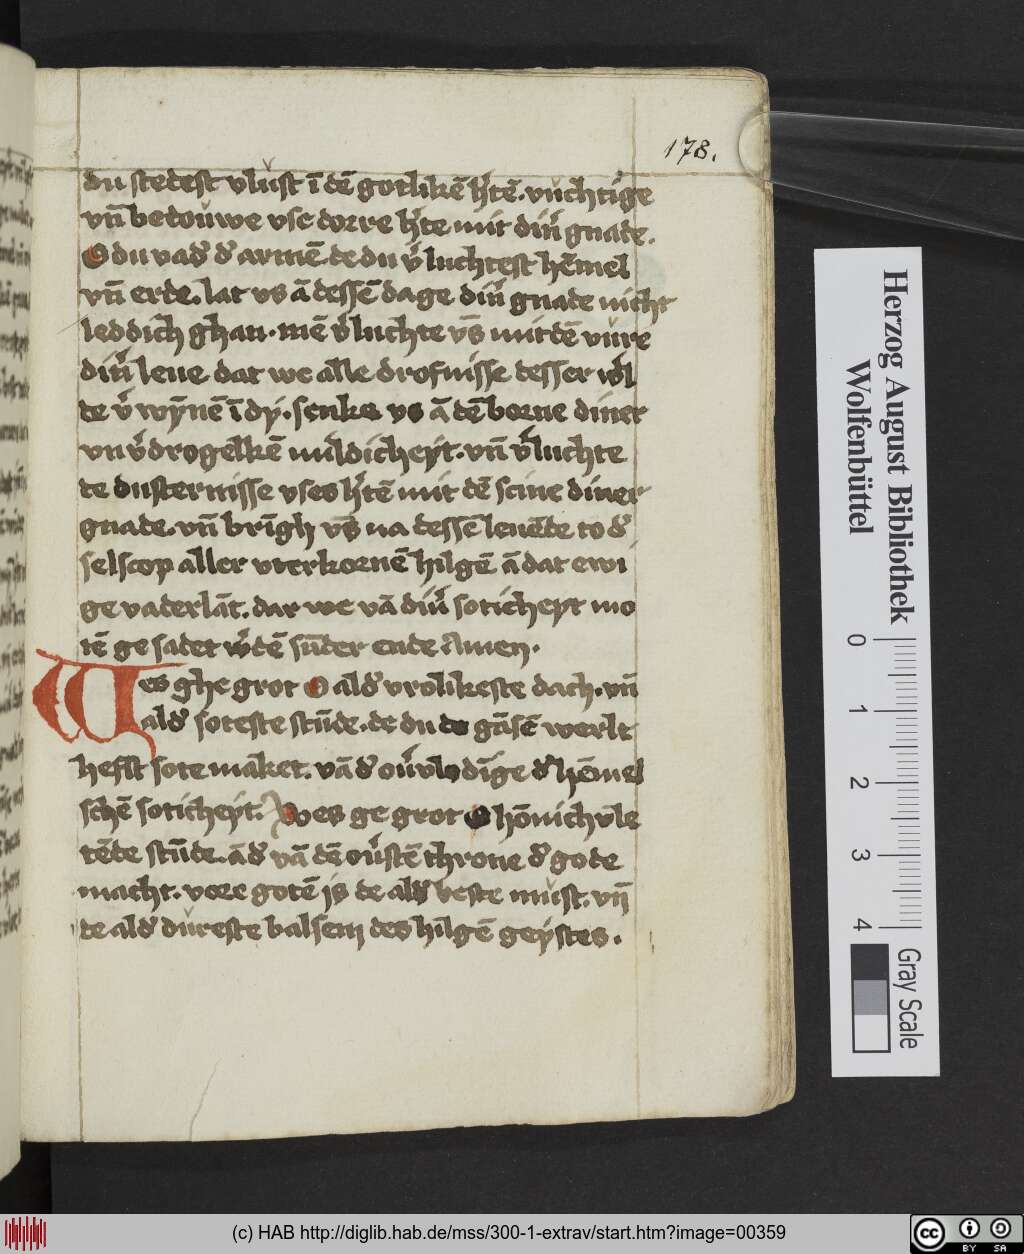 178.
du stedest vlust ī dē gotlikē h'tē. vuchtige
vn̄ bedouwe vse dorre h'te mit din' gnade.
O du vad' d' armē de du v'luchtest hēmel
vn̄ erde. lat vs ā dessē dage din' gnade nicht
leddich ghan. mē v'luchte vs̄ mit dē vure
din' leue dat we alle drofnisse desser w'l
de v'wȳnē ī dy. scrike vs ā dē borne diner
vnv'drogelkē mildicheyt. vn̄ v'luchte
de dusternisse vses h'tē mit dē scine diner
gnade. vn̄ brīgh vs̄ na dessē leuēde to d'
selscop aller vterkornē hilgē ā dat ewi
ge vaderlāt. dar we vā din' soticheyt mo
tē ge sadet w'dē sūder ende Amen.
Wes ghe grot O ald' vrolikeste dach. vn̄
ald' soteste stūde. de du de gāsē werlt
hefst sote maket. vā d' ou'vlodīge d' hēmel
schē soticheyt. Wes ge grot O hōnichvle
tēde stūde. ā d' vā dē ou'stē throne d' gode
macht. vore gotē is de ald' beste must. vn̄
de ald' dureste balsem des hilgē geystes.
Herzog August Bibliothek
Wolfenbüttel
0 1 2 3 4
Gray Scale
(c) HAB http://diglib.hab.de/mss/300-1-extrav/start.htm?image=00359
cc BY SA